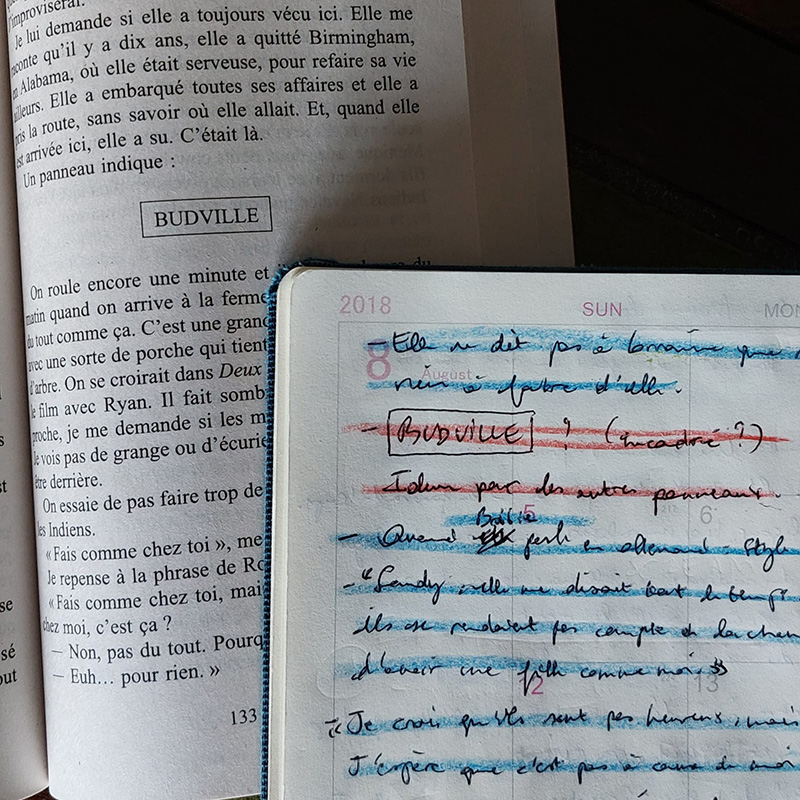 l'improviserai.
Je lui demande si elle a toujours vécu ici. Elle me
raconte qu'il y a dix ans, elle a quitté Birmingham,
en Alabama, où elle était serveuse, pour refaire sa vie
ailleurs. Elle a embarqué toutes ses affaires et elle a
pris la route, sans savoir où elle allait. Et, quand elle
est arrivée ici, elle a su. C'était là.
Un panneau indique :
BUDVILLE
On roule encore une minute et
matin quand on arrive à la ferme
du tout comme ça. C'est une grand
avec une sorte de porche qui tient
d'arbre. On se croirait dans Deux
le film avec Ryan. Il fait somb
proche, je me demande si les m
Je vois pas de grange ou d'écurie
être derrière.
On essaie de pas faire trop de
les Indiens.
« Fais comme chez toi », me
Je repense à la phrase de Ro
« Fais comme chez toi, mai
chez moi, c'est ça ?
— Non, pas du tout. Pourq
— Euh… pour rien. »
133
2018
SUN
MON
8
August
- Elle ne dit pas à maman que
rien à foutre d'elle.
- BUDVILLE ? (encadré ?)
Idem pour les autres panneaux.
5
6
- Quand Bailie parle en allemand - style
- "Sandy, elle me disait tout le temps
ils se rendaient pas compte de la chan
d'avoir une fille comme moi."
12
13
"Je crois qu'ils sont pas heureux, mais
J'espère que c'est pas à cause de moi